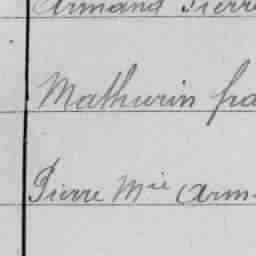 Armand Pierre
Mathurin fra
Pierre Mie Arm